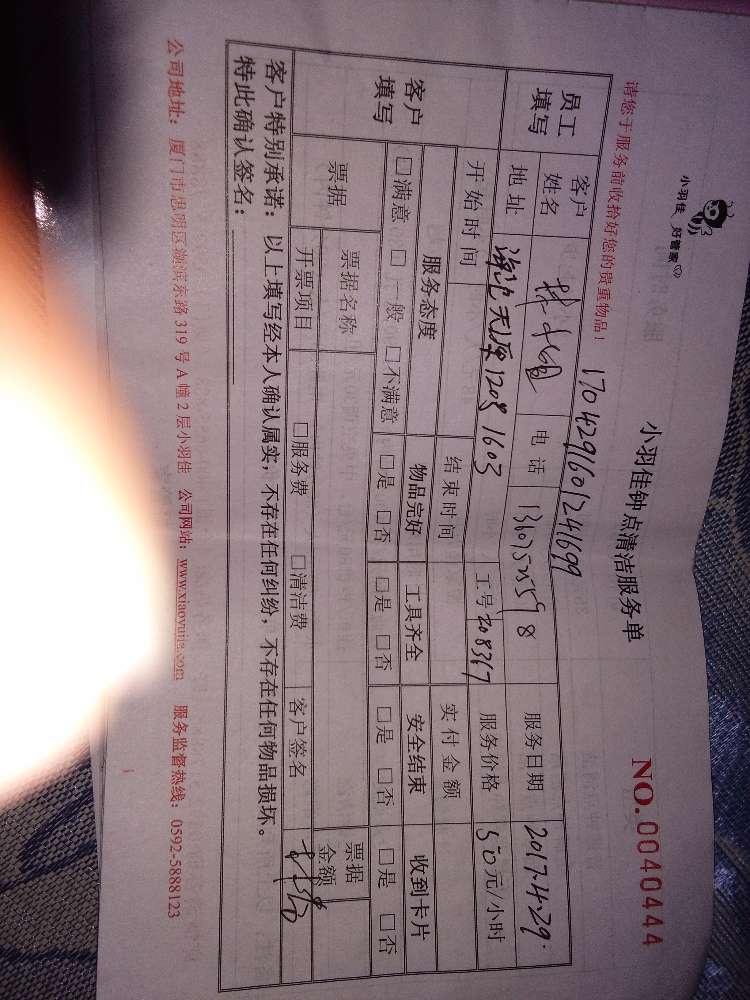 小羽佳 好管家
小羽佳钟点清洁服务单
NO.0040444
请您于服务前收拾好您的贵重物品！
1704291601241699
员工填写 客户姓名 林 电话 服务日期 2017.4.29.
地址 天湖 1208 1603 工号 208367 服务价格 50元/小时
开始时间 结束时间 实付金额
客户填写 服务态度 物品完好 工具齐全 安全结束 收到卡片
□满意 □一般 □不满意 □是 □否 □是 □否 □是 □否 □是 □否
票据 票据名称 票据金额
开票项目 □服务费 □清洁费 客户签名
客户特别承诺：以上填写经本人确认属实，不存在任何纠纷，不存在任何物品损坏。
特此确认签名：
公司地址：厦门市思明区湖滨东路 319 号 A 幢 2 层小羽佳 公司网站：www.xiaoyujia.com 服务监督热线：0592-5888123